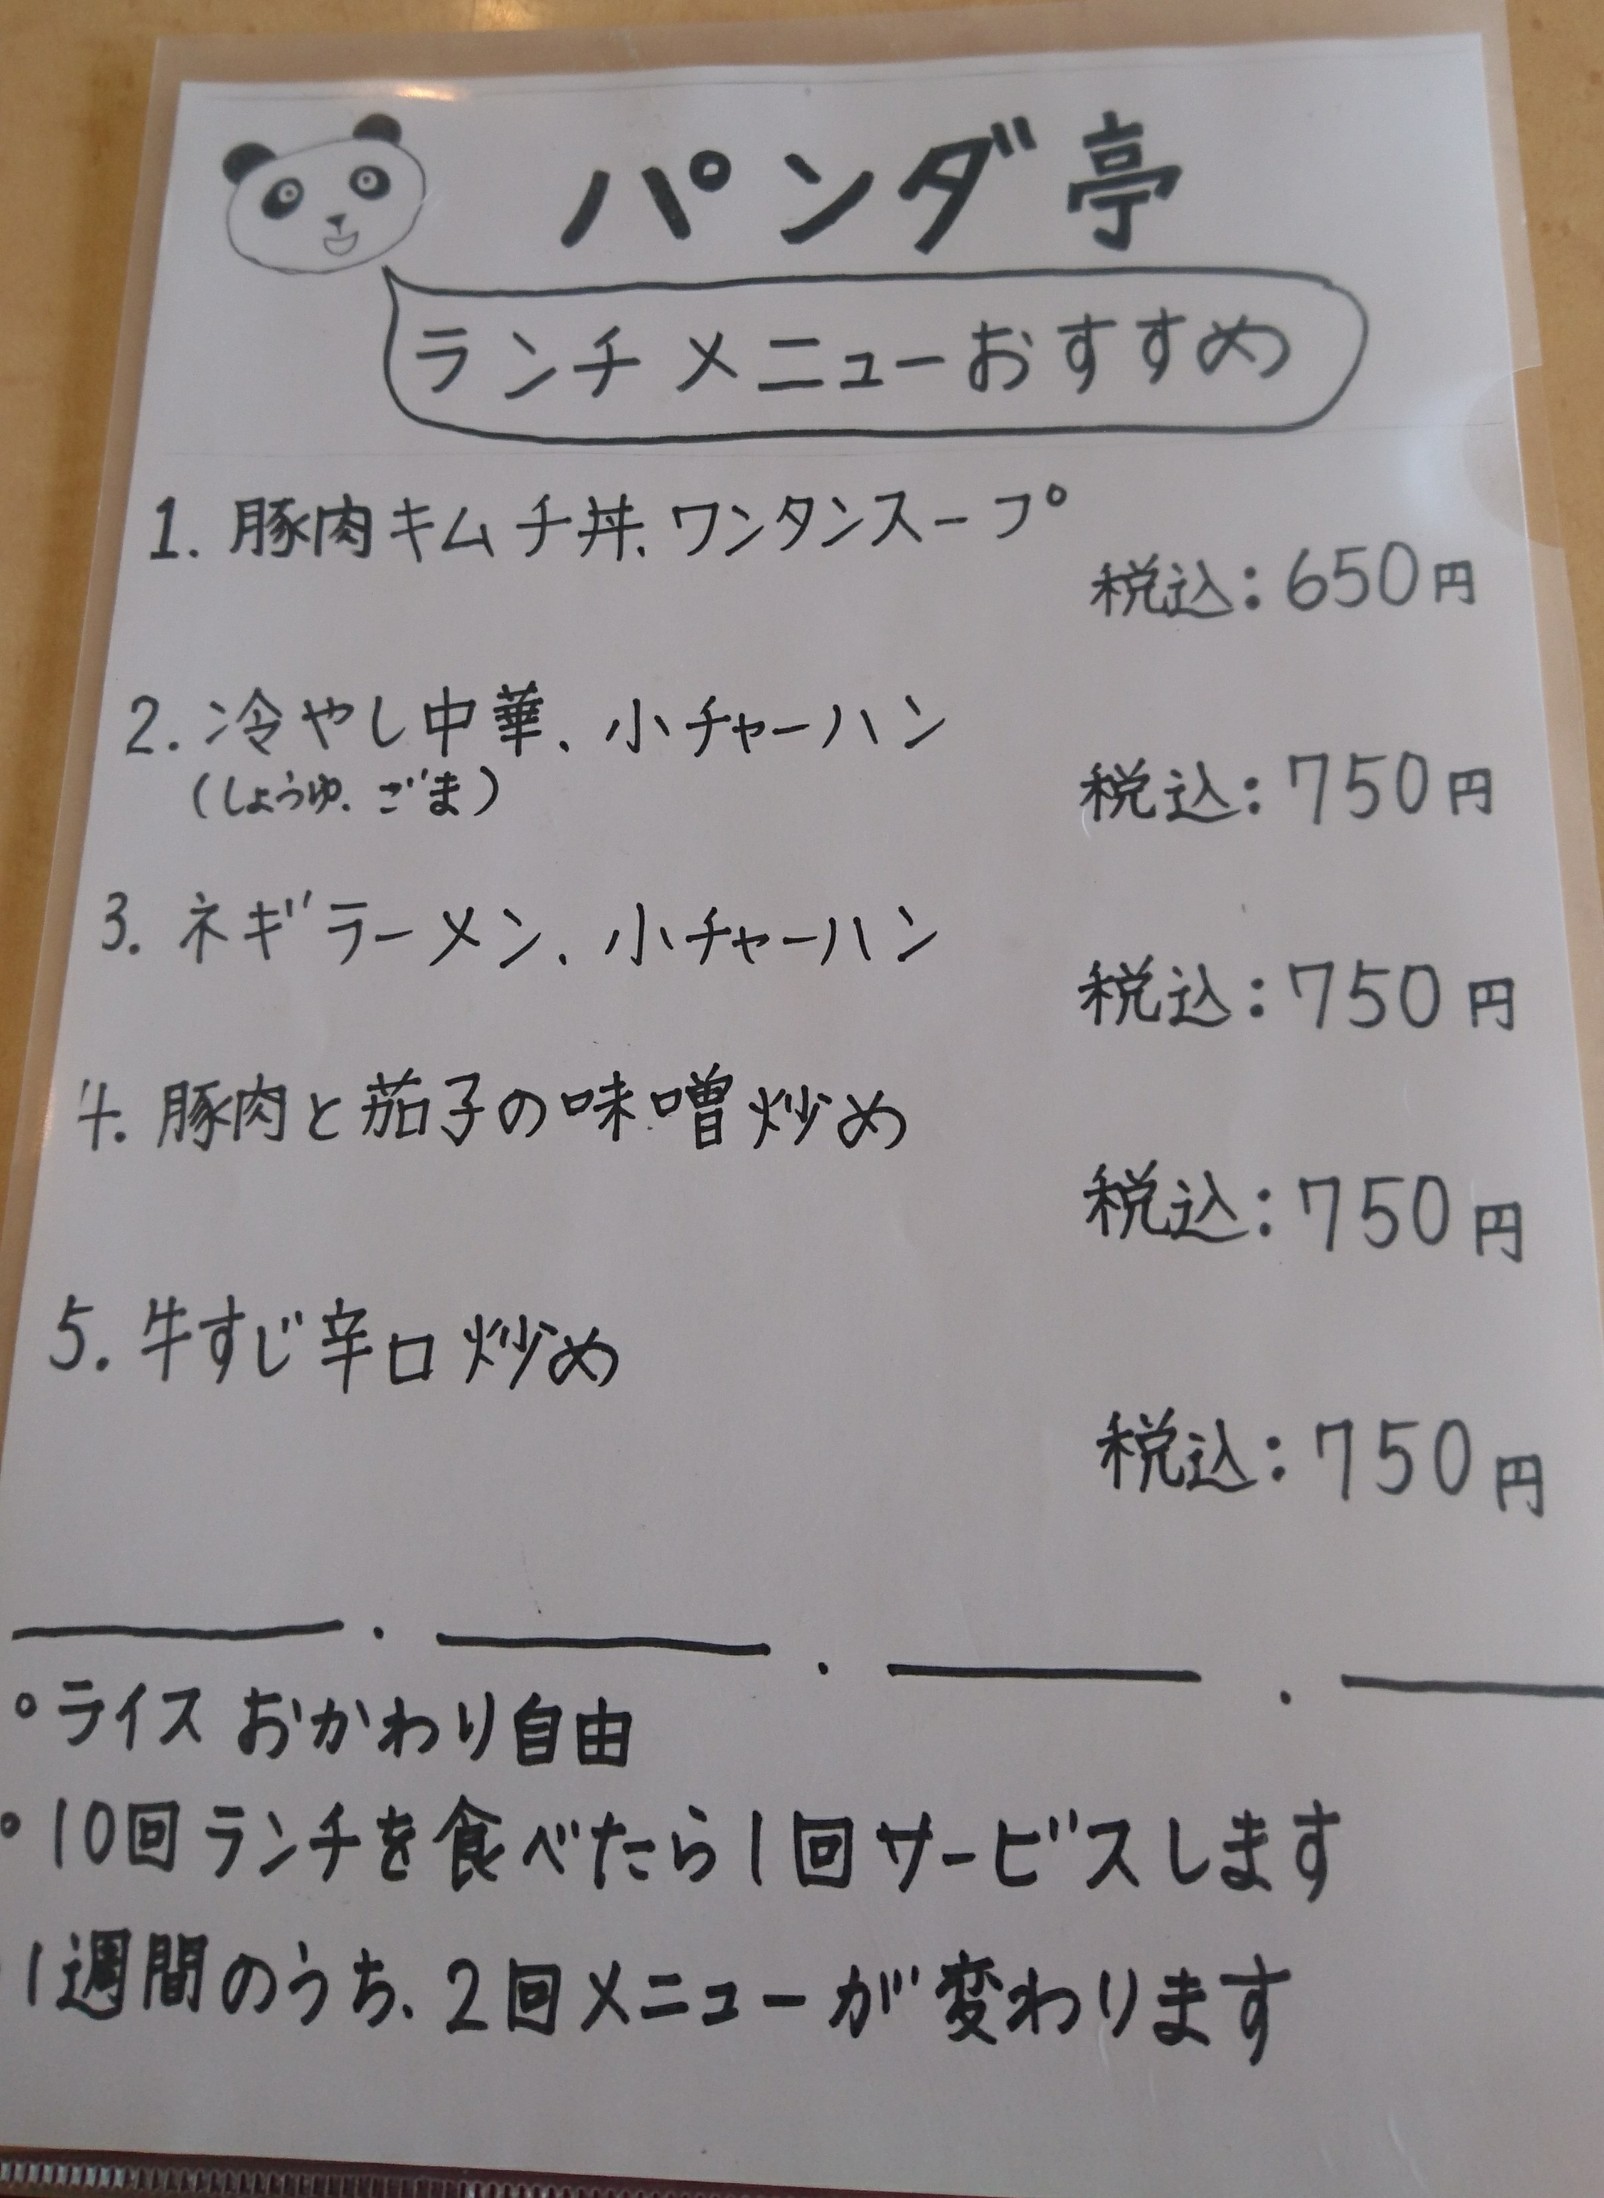 パンダ亭
ランチメニューおすすめ
1. 豚肉キムチ丼、ワンタンスープ
税込:650円
2. 冷やし中華、小チャーハン
(しょうゆ、ごま)
税込:750円
3. ネギラーメン、小チャーハン
税込:750円
4. 豚肉と茄子の味噌炒め
税込:750円
5. 牛すじ辛口炒め
税込:750円
°ライスおかわり自由
°10回ランチを食べたら1回サービスします
1週間のうち、2回メニューが変わります